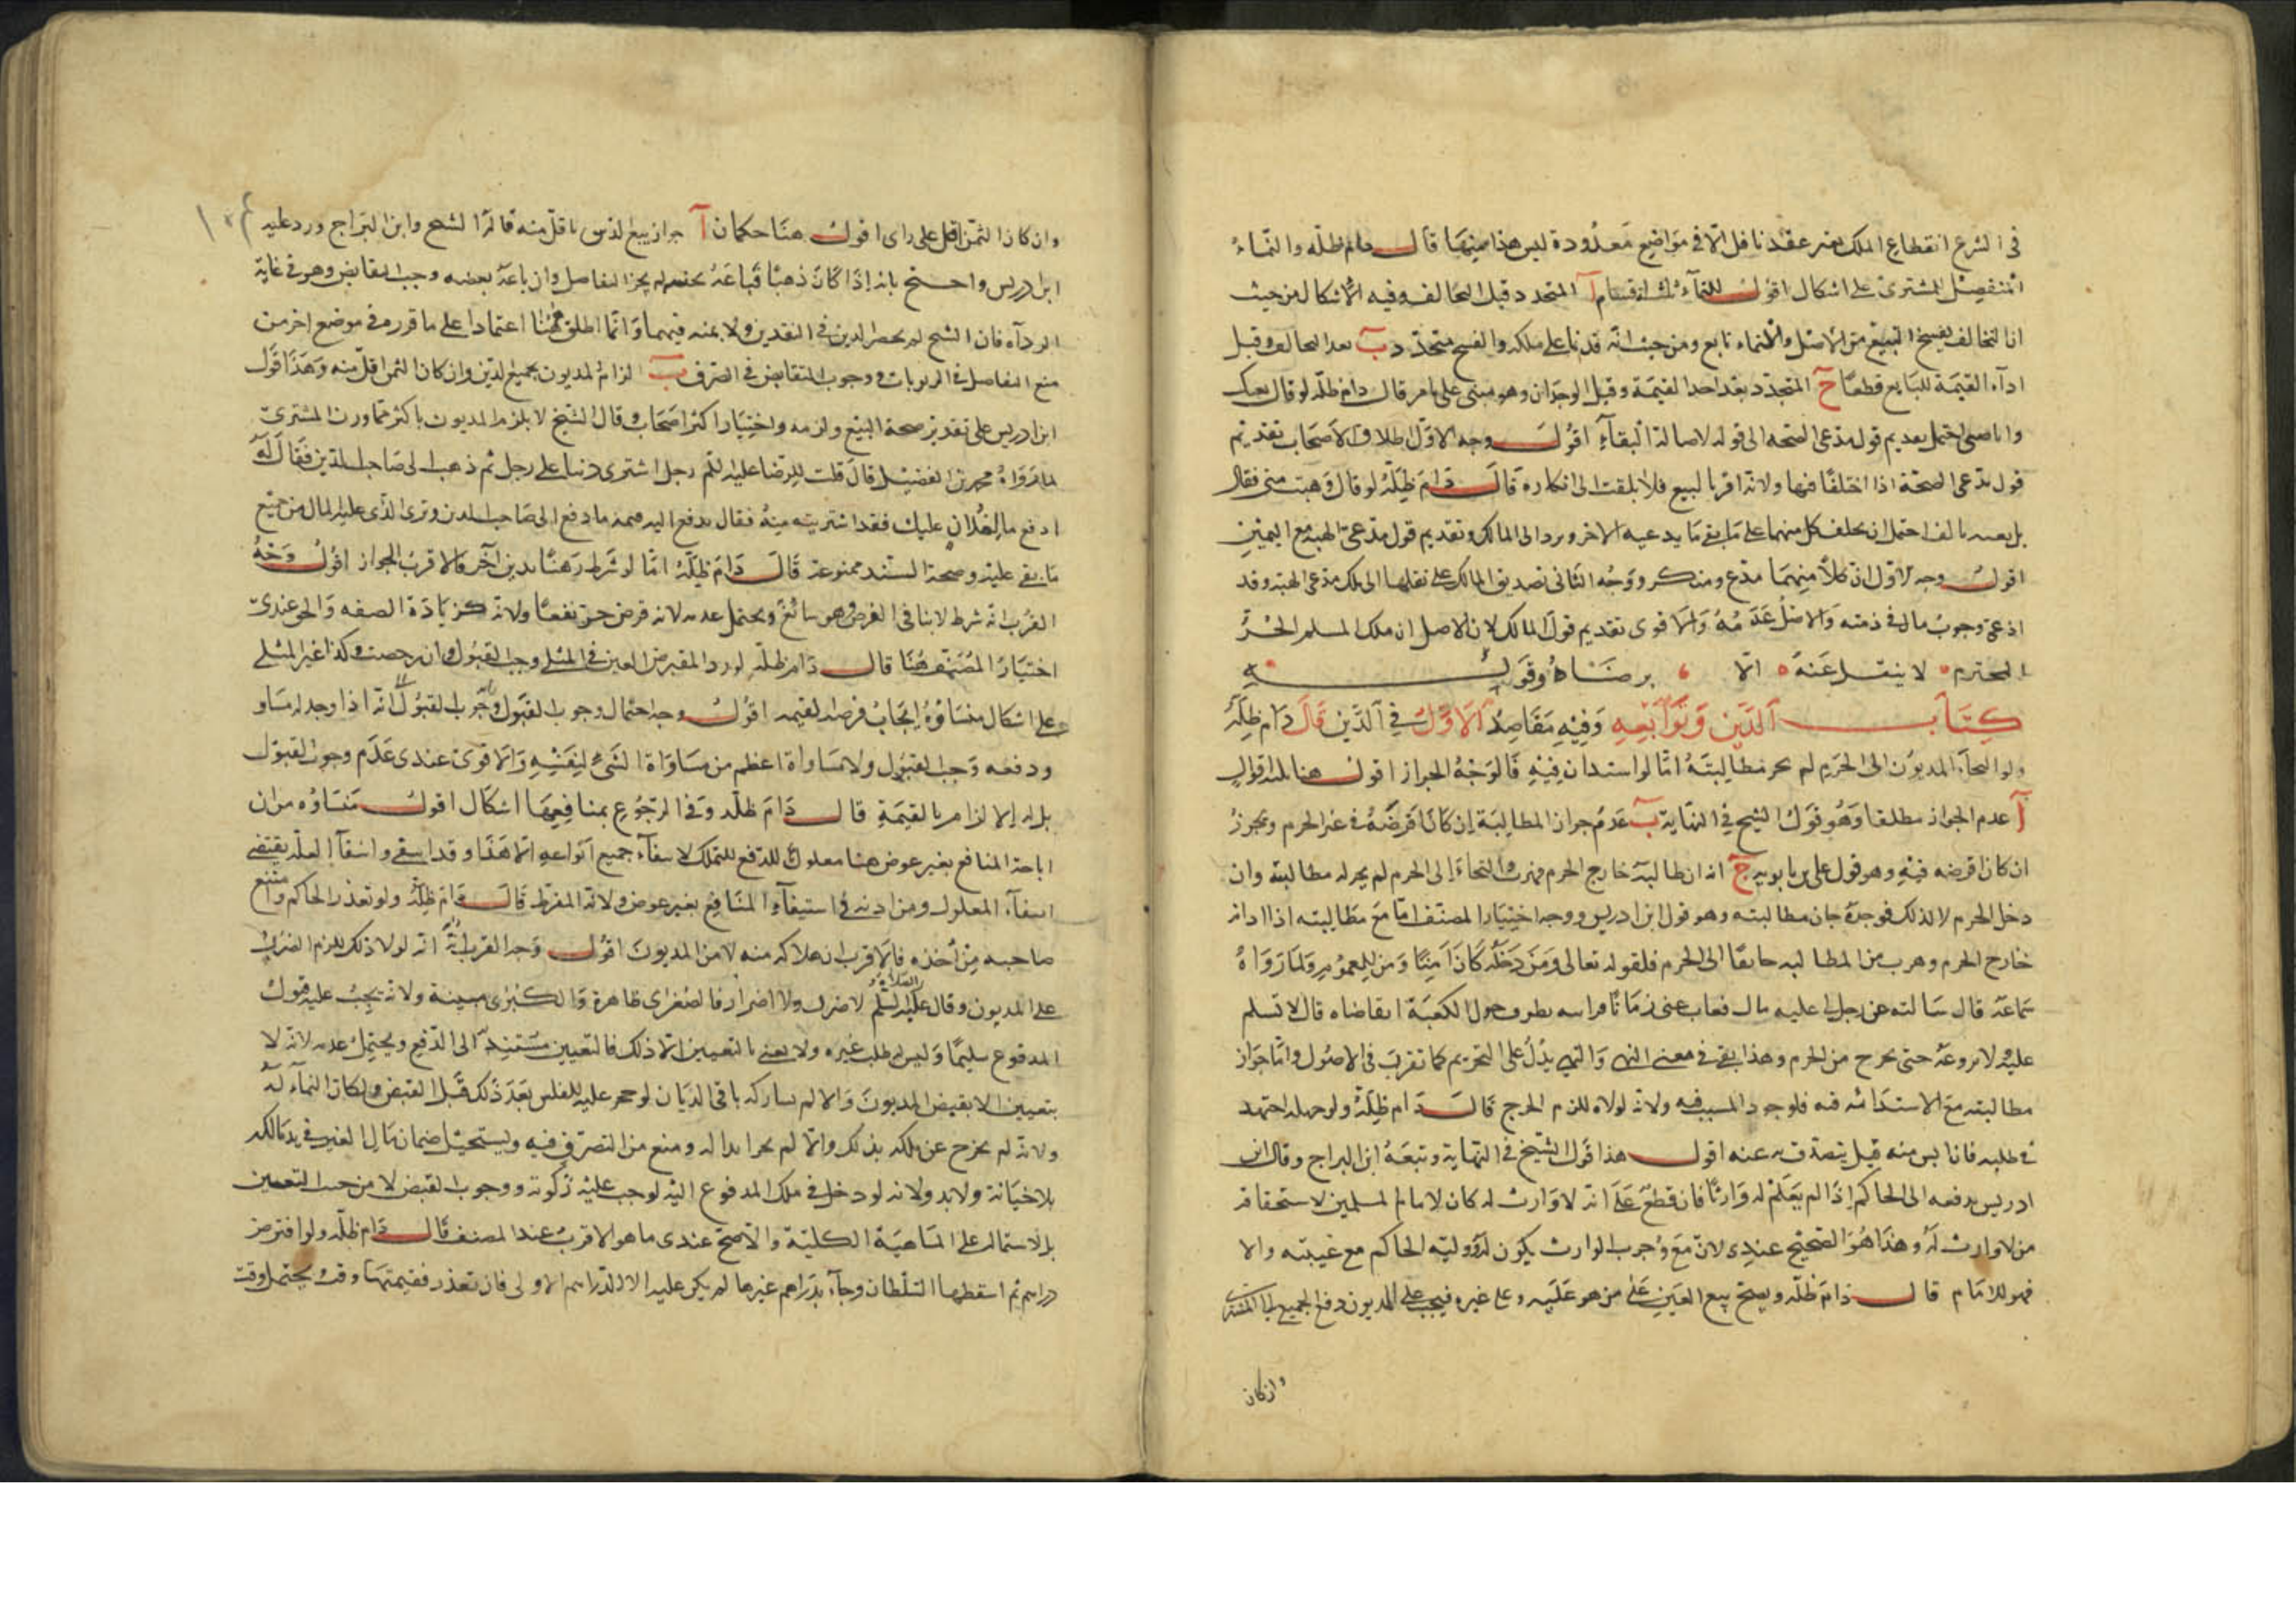 في الشرع انقطاع الملك بغير عقد ناقل الا في مواضع معدودة ليس هذا منها قال دام ظله والنماء
المنفصل للمشتري على اشكال اقول للنماء ثلثة اقسام آ المتجدد قبل التحالف وفيه الاشكال من حيث
ان التخالف يفسخ البيع من الاصل والنماء تابع ومن حيث انه قد نما على ملكه والفسخ متجدد ب بعد التحالف وقبل
اداء القيمة للبايع قطعا ج المتجدد بعد اخذ القيمة وقبل الوجدان وهو مبني على ما مر قال دام ظله لو قال بعتك
وانا صبي احتمل تقديم قول مدعي الصحة الى قوله لاصالة البقاء اقول وجه الاول اطلاق الاصحاب تقديم
قول مدعي الصحة اذا اختلفا فيها ولانه اقر بالبيع فلا يلتفت الى انكاره قال دام ظله لو قال وهبت مني فقال
بل بعته بالف احتمل ان يحلف كل منهما على ما يدعيه الاخر ويرد الى المالك وتقديم قول مدعي الهبة مع اليمين
اقول وجه الاول ان كلا منهما مدع ومنكر ووجه الثاني تصديق المالك على نقلها الى ملك مدعي الهبة وقد
ادعى وجوب مال في ذمته والاصل عدمه والاقوى تقديم قول المالك لان الاصل ان ملك المسلم الحر
المحترم لا ينتقل عنه الا برضاه وقوله
كتاب الدين وتوابعه وفيه مقاصد الاول في الدين قال دام ظله
ولو التجأ المديون الى الحرم لم يجز مطالبته اما لو استدان فيه فالوجه الجواز اقول هنا ثلثة اقوال
آ عدم الجواز مطلقا وهو قول الشيخ في النهاية ب عدم جواز المطالبة ان كان اقرضه في غير الحرم ويجوز
ان كان اقرضه فيه وهو قول علي بن بابويه ج انه ان طالبه خارج الحرم فهرب والتجاء الى الحرم لم يجز له مطالبته وان
دخل الحرم لا لذلك فوجده جاز مطالبته وهو قول ابن ادريس ووجه اختيار المصنف اما منع مطالبته اذا ادانه
خارج الحرم وهرب من المطالبة خائفا الى الحرم فلقوله تعالى ومن دخله كان آمنا ومن للعموم ولما رواه
سماعة قال سالته عن رجل لي عليه مال فغاب عني زمانا فرايته يطوف حول الكعبة اتقاضاه قال لا تسلم
عليه ولا تروعه حتى يخرج من الحرم وهذا نفي في معنى النهي والنهي يدل على التحريم كما تقرر في الاصول واما جواز
مطالبته مع الاستدانة فيه فلوجود السبب فيه ولانه لولاه للزم الحرج قال دام ظله ولو جهله اجتهد
في طلبه فان ايس منه قيل يتصدق به عنه اقول هذا قول الشيخ في النهاية وتبعه ابن البراج وقال ابن
ادريس يدفعه الى الحاكم اذا لم يعلم له وارثا فان قطع على انه لا وارث له كان لامام المسلمين لاستحقاقه
من لا وارث له وهذا هو الصحيح عندي لانه مع وجوب الوارث يكون له ووليه الحاكم مع غيبته والا
فهو للامام قال دام ظله ويصح بيع الدين على من هو عليه وعلى غيره فيجب على المديون دفع الجميع الى المشتري
وان كان
وان كان الثمن اقل على راى اقول هنا حكمان آ جواز بيع الدين باقل منه قاله الشيخ وابن البراج ورد عليه
ابن ادريس واحتج بانه اذا كان ذهبا فباعه بجنسه لم يجز التفاضل وان باعه بفضة وجب التقابض وهو في غاية
الرداءة فان الشيخ لم يحصر الدين في النقدين ولا ثمنه فيهما وانما اطلق هنا اعتمادا على ما قرره في موضع اخر من
منع التفاضل في الربويات ووجوب التقابض في الصرف ب الزام المديون بجميع الدين وان كان الثمن اقل منه وهذا قول
ابن ادريس على تقدير صحة البيع ولزمه واختيار اكثر اصحابه وقال الشيخ لا يلزم المديون باكثر مما وزن المشتري
لما رواه محمد بن الفضيل قال قلت للرضا عليه السلم رجل اشترى دينا على رجل ثم ذهب الى صاحب الدين فقال له
ادفع ما لفلان عليك فقد اشتريته منه فقال يدفع اليه قيمة ما دفع الى صاحب الدين وبرئ الذي عليه المال من جميع
ما بقي عليه وصحة السند ممنوعة قال دام ظله اما لو شرط رهنا بدين آخر فالاقرب الجواز اقول وجه
القرب انه شرط لا ينافي القرض وهو سائغ ويحتمل عدمه لانه قرض جر نفعا ولانه كزيادة الصفة والحق عندي
اختيار المصنف هنا قال دام ظله لو رد المقترض العين في المثلي وجب القبول وان رخصت وكذا غير المثلي
على اشكال منشاؤه ايجاب قرضه القيمة اقول وجه احتمال وجوب القبول انه اذا وجد له مساو
ودفعه وجب القبول ولا مساواة اعظم من مساواة الشيء لنفسه والاقوى عندي عدم وجوب القبول
بل له الزامه بالقيمة قال دام ظله وفي الرجوع بمنافعها اشكال اقول منشاؤه من ان
اباحة المنافع بغير عوض هنا معلول للدفع للتملك لانتفاء جميع انواعه الا هذا وقد انتفى وانتفاء العلة يقتضي
انتفاء المعلول ومن اذنه في استيفاء المنافع بغير عوض ولانه المفرط قال دام ظله ولو تعذر الحاكم وامتنع
صاحبه من اخذه فالاقرب ان هلاكه منه لا من المديون اقول وجه القرب انه لولا ذلك للزم الضرر
على المديون وقال عليه السلم لا ضرر ولا اضرار فالصغرى ظاهرة والكبرى مبينة ولانه يجب عليه قبول
المدفوع سليما وليس له طلب غيره ولا يعني بالتعيين الا ذلك فالتعيين مستند الى الدفع ويحتمل عدمه لانه لا
يتعيين الا بقبض المديون والا لم يشاركه باقي الديان لو حجر عليه للفلس بعد ذلك قبل القبض ولكان النماء له
ولانه لم يخرج عن ملكه بذلك والا لم يجز ابداله ومنع من التصرف فيه ويستحيل ضمان مال الغير في يد مالكه
بلا خيانة ولا يد ولانه لو دخل في ملك المدفوع اليه لوجب عليه زكوته ووجوب القبض لا من حيث التعيين
بل لاشتماله على الماهية الكلية والاصح عندي ما هو الاقرب عند المصنف قال دام ظله ولو اقترض
دراهم ثم اسقطها السلطان وجاء بدراهم غيرها لم يكن عليه الا الدراهم الاولى فان تعذر فقيمتها وقت يحتمل وقت